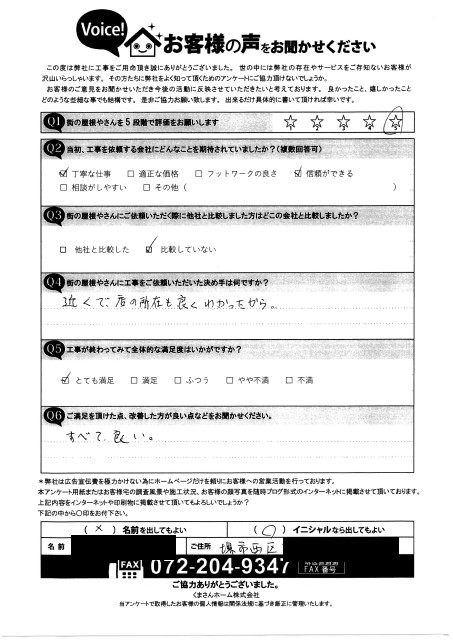 Voice!
お客様の声をお聞かせください
この度は弊社に工事をご用命頂き誠にありがとうございました。 世の中には弊社の存在やサービスをご存知ないお客様が
沢山いらっしゃいます。 その方たちに弊社をよく知って頂くためのアンケートにご協力頂けないでしょうか。
お客様のご意見をお聞かせいただき今後の活動に反映させていただきたいと考えております。 良かったこと、嬉しかったこと
どのような些細な事でも結構です。 是非ご協力お願い致します。 出来るだけ具体的に書いて頂ければ幸いです。
Q1 街の屋根やさんを5段階で評価をお願いします ☆1 ☆2 ☆3 ☆4 ☆5
Q2 当初、工事を依頼する会社にどんなことを期待されていましたか?(複数回答可)
☑ 丁寧な仕事 □ 適正な価格 □ フットワークの良さ ☑ 信頼ができる
□ 相談がしやすい □ その他 ( )
Q3 街の屋根やさんにご依頼いただく際に他社と比較しました方はどこの会社と比較しましたか?
□ 他社と比較した ☑ 比較していない
Q4 街の屋根やさんに工事をご依頼いただいた決め手は何ですか?
近くで、店の所在も良くわかったから。
Q5 工事が終わってみて全体的な満足度はいかがですか?
☑ とても満足 □ 満足 □ ふつう □ やや不満 □ 不満
Q6 ご満足を頂けた点、改善した方が良い点などをお聞かせください。
すべて、良い。
*弊社は広告宣伝費を極力かけない為にホームページだけを頼りにお客様への営業活動を行っております。
本アンケート用紙またはお客様宅の調査風景や施工状況、お客様の顔写真を随時ブログ形式のインターネットに掲載させて頂いております。
上記内容をインターネットや印刷物に掲載させて頂いてもよろしいでしょうか?
下記の中から〇印をお付下さい。
( × ) 名前を出してもよい ( 〇 ) イニシャルなら出してもよい
名 前 ご住所 堺市西区
FAX 072-204-9347 FAX番号
ご協力ありがとうございました。
くまさんホーム株式会社
当アンケートで取得したお客様の個人情報は関係法規に基づき厳正に管理いたします。